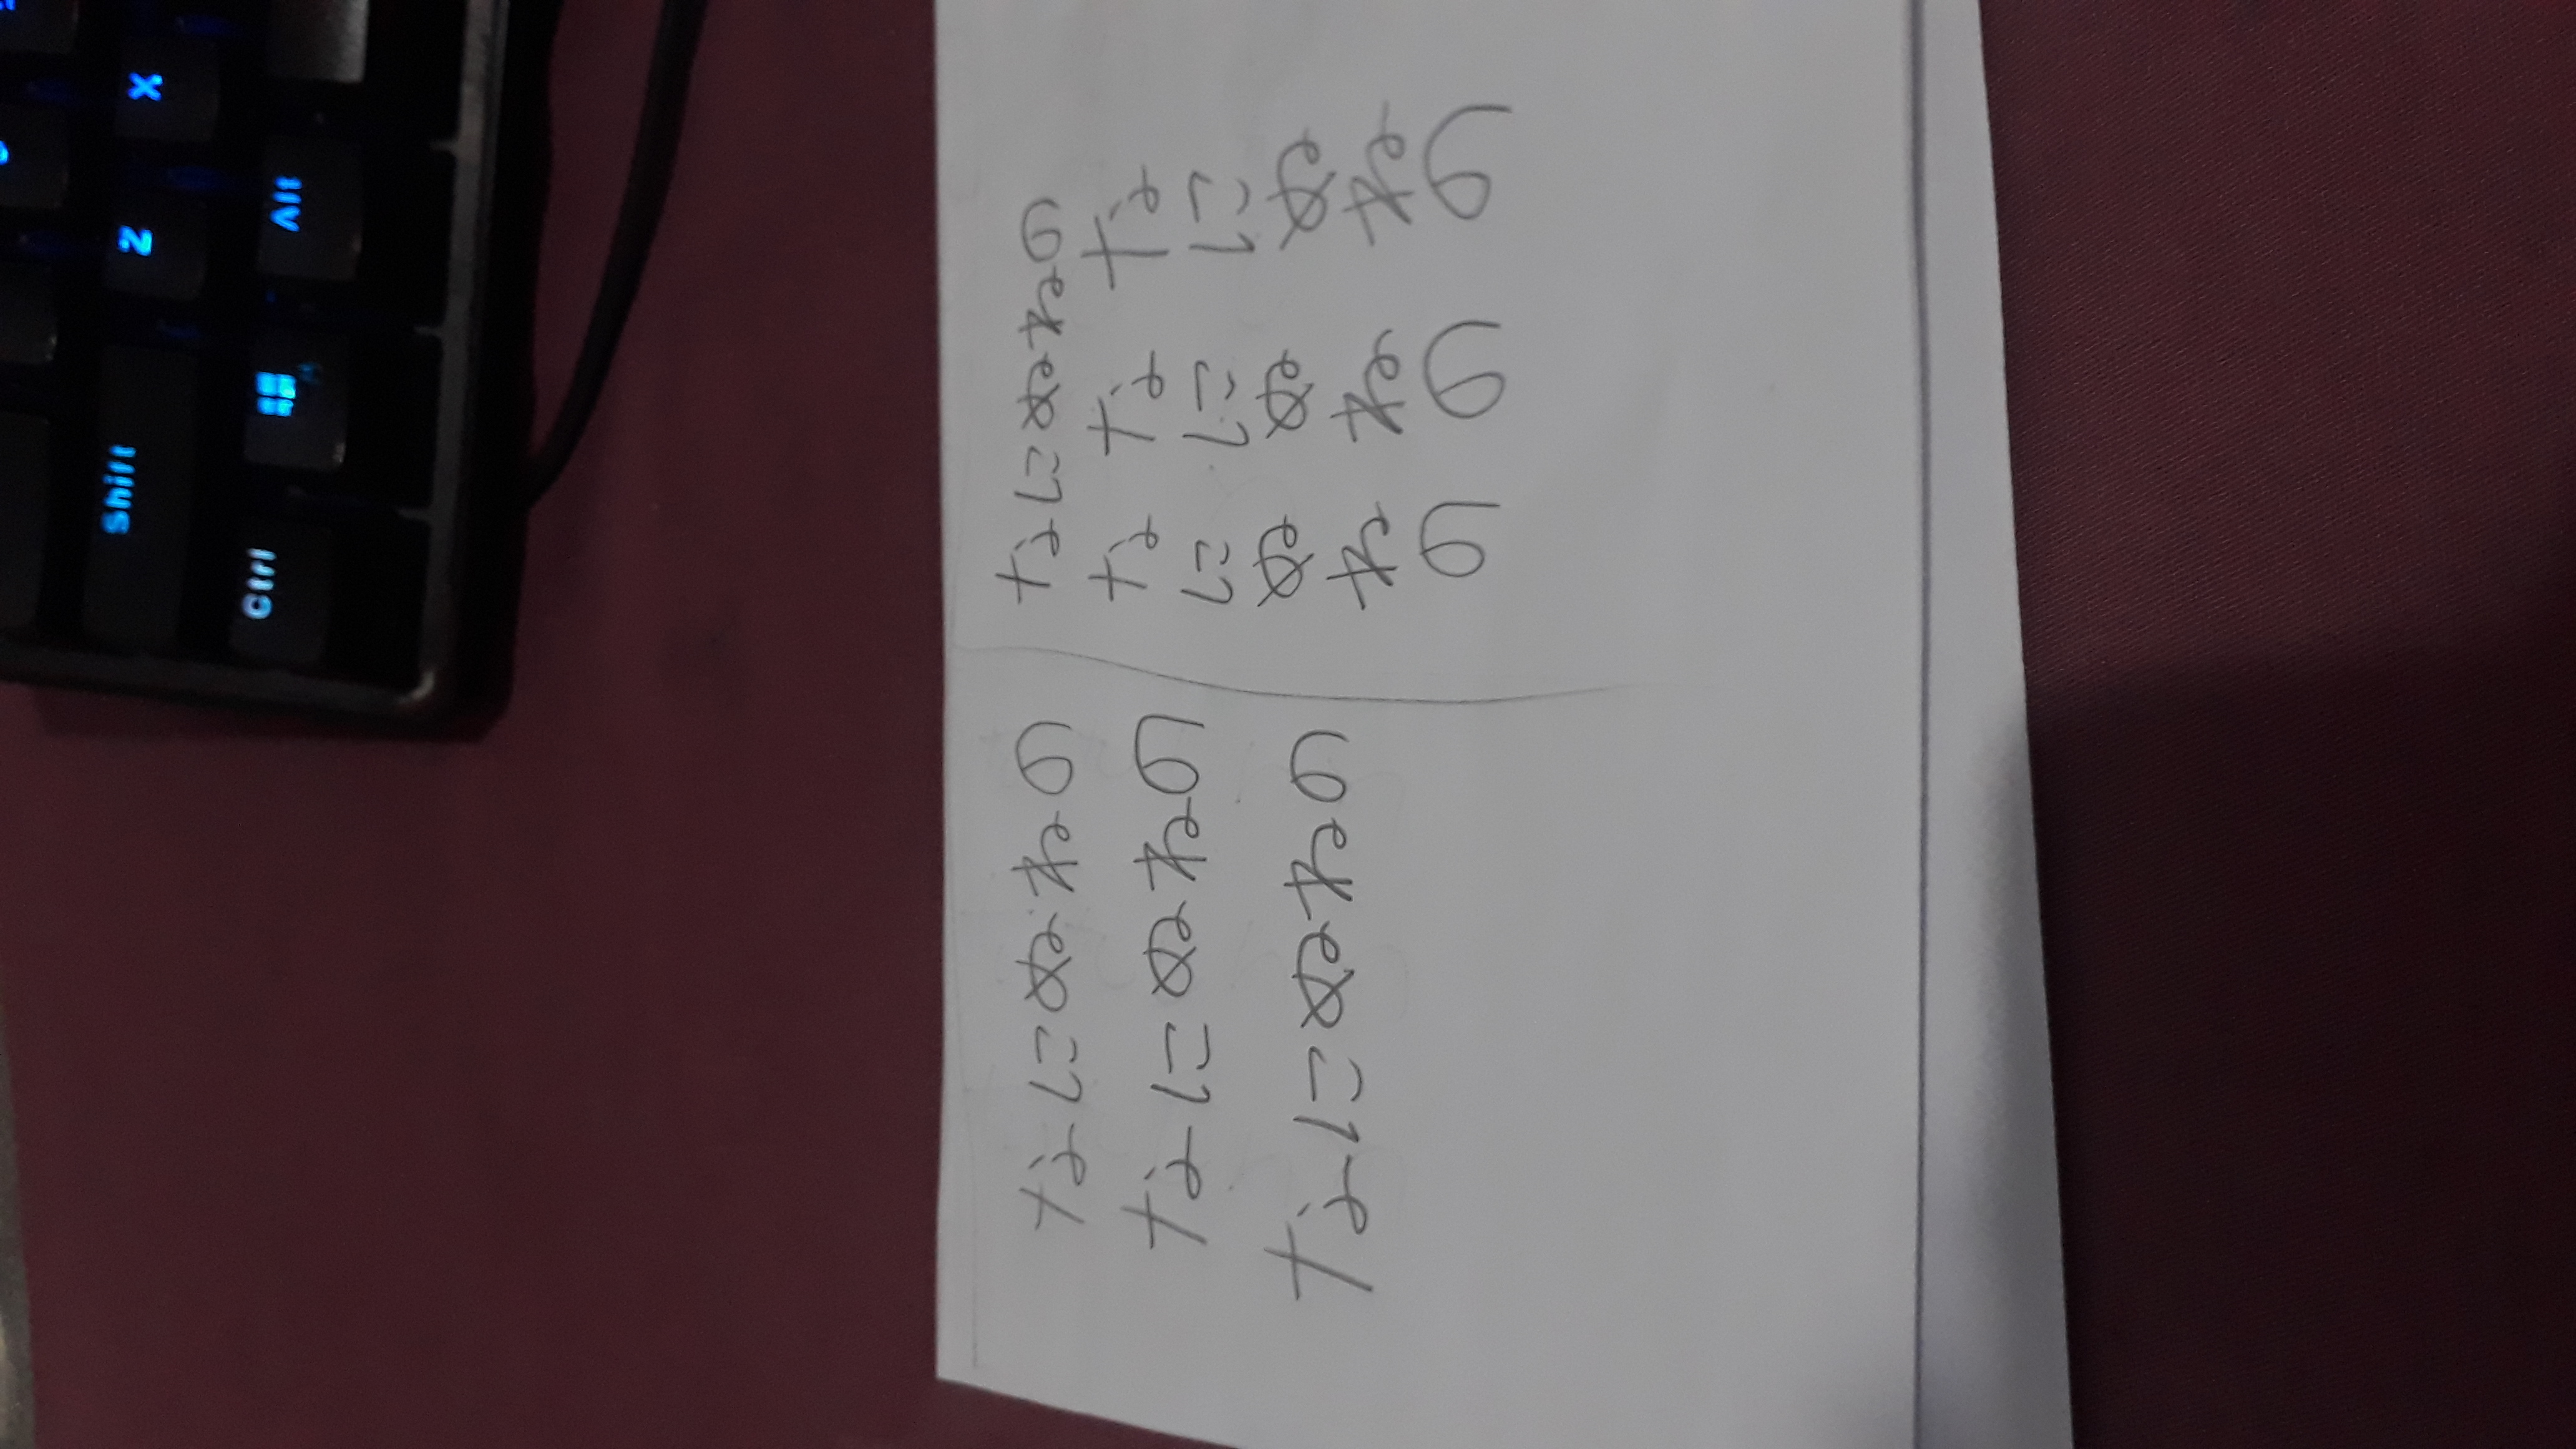 Shift Z X
Ctrl Alt
なにぬねの
なにぬねの
なにぬねの
なにぬねの
な な な
に に に
ぬ ぬ ぬ
ね ね ね
の の の